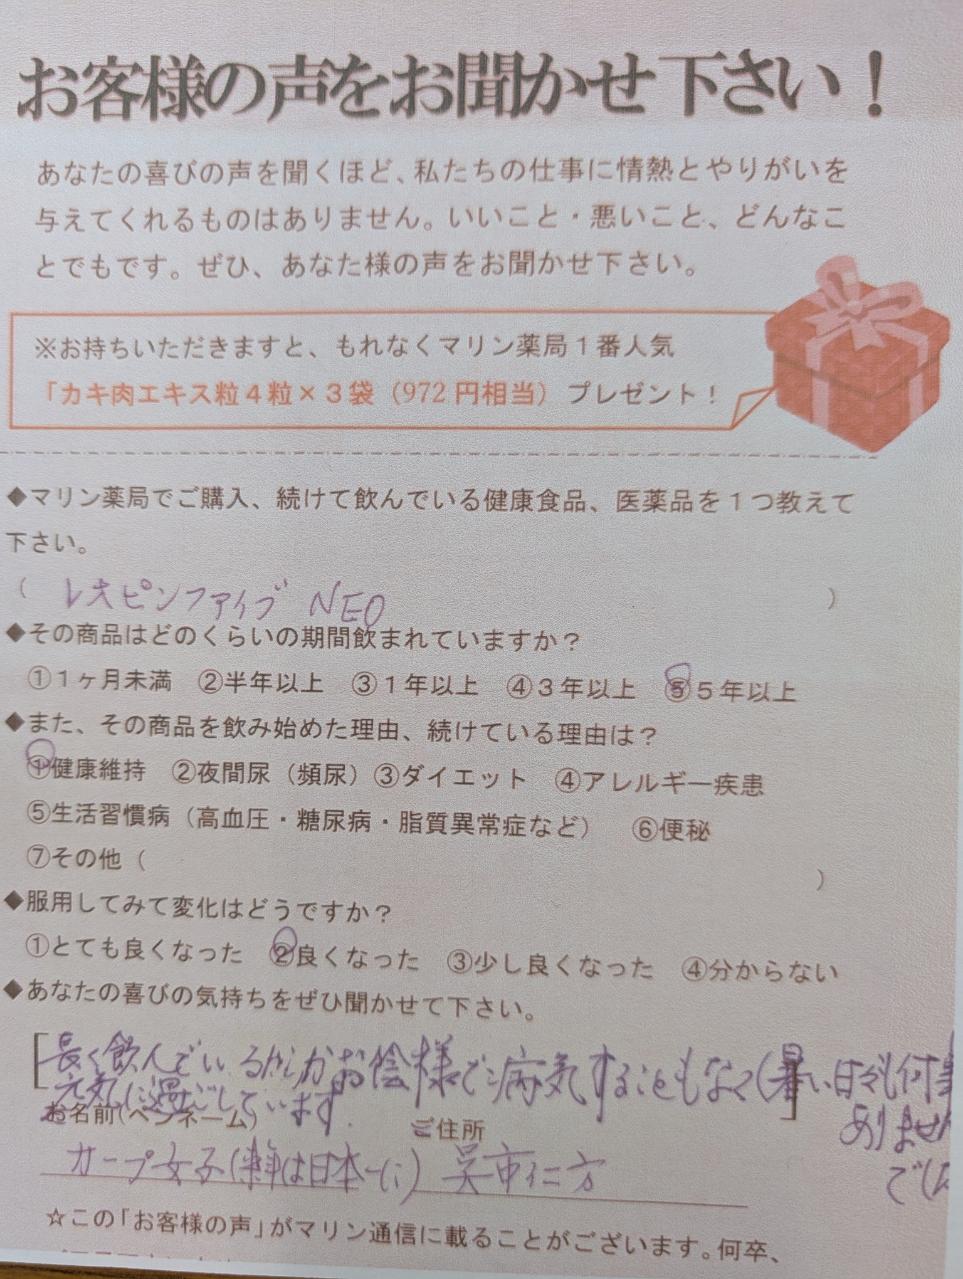 お客様の声をお聞かせ下さい！
あなたの喜びの声を聞くほど、私たちの仕事に情熱とやりがいを
与えてくれるものはありません。いいこと・悪いこと、どんなこ
とでもです。ぜひ、あなた様の声をお聞かせ下さい。
※お持ちいただきますと、もれなくマリン薬局１番人気
「カキ肉エキス粒４粒×３袋（972円相当）プレゼント！
◆マリン薬局でご購入、続けて飲んでいる健康食品、医薬品を１つ教えて
下さい。
（ レオピンファイブ NEO ）
◆その商品はどのくらいの期間飲まれていますか？
①１ヶ月未満 ②半年以上 ③１年以上 ④３年以上 ⑤５年以上
◆また、その商品を飲み始めた理由、続けている理由は？
①健康維持 ②夜間尿（頻尿）③ダイエット ④アレルギー疾患
⑤生活習慣病（高血圧・糖尿病・脂質異常症など） ⑥便秘
⑦その他（ ）
◆服用してみて変化はどうですか？
①とても良くなった ②良くなった ③少し良くなった ④分からない
◆あなたの喜びの気持ちをぜひ聞かせて下さい。
長く飲んでいる お陰様で病気することもなく(暑い日々も何事
ありません
でした
元気に過ごしています.
お名前(ペンネーム) ご住所
カープ女子( は日本一に) 呉市仁方
☆この「お客様の声」がマリン通信に載ることがございます。何卒、